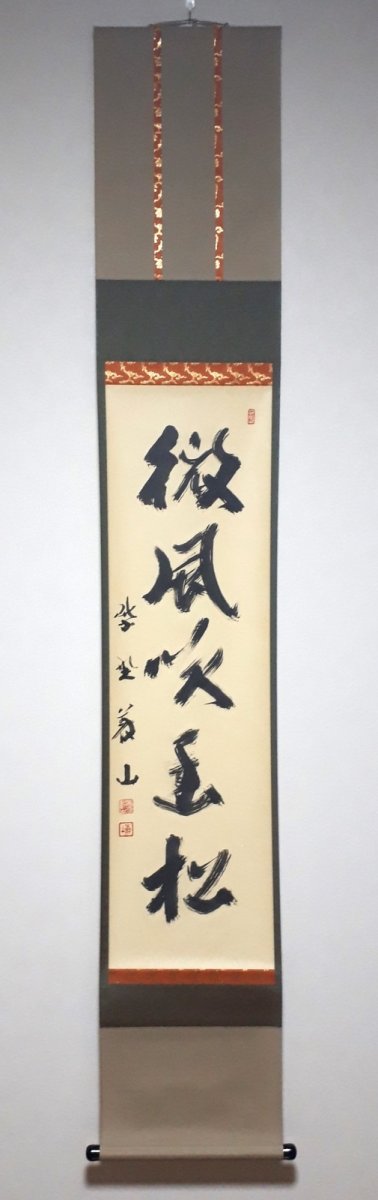 微風吹幽松
紫野義山